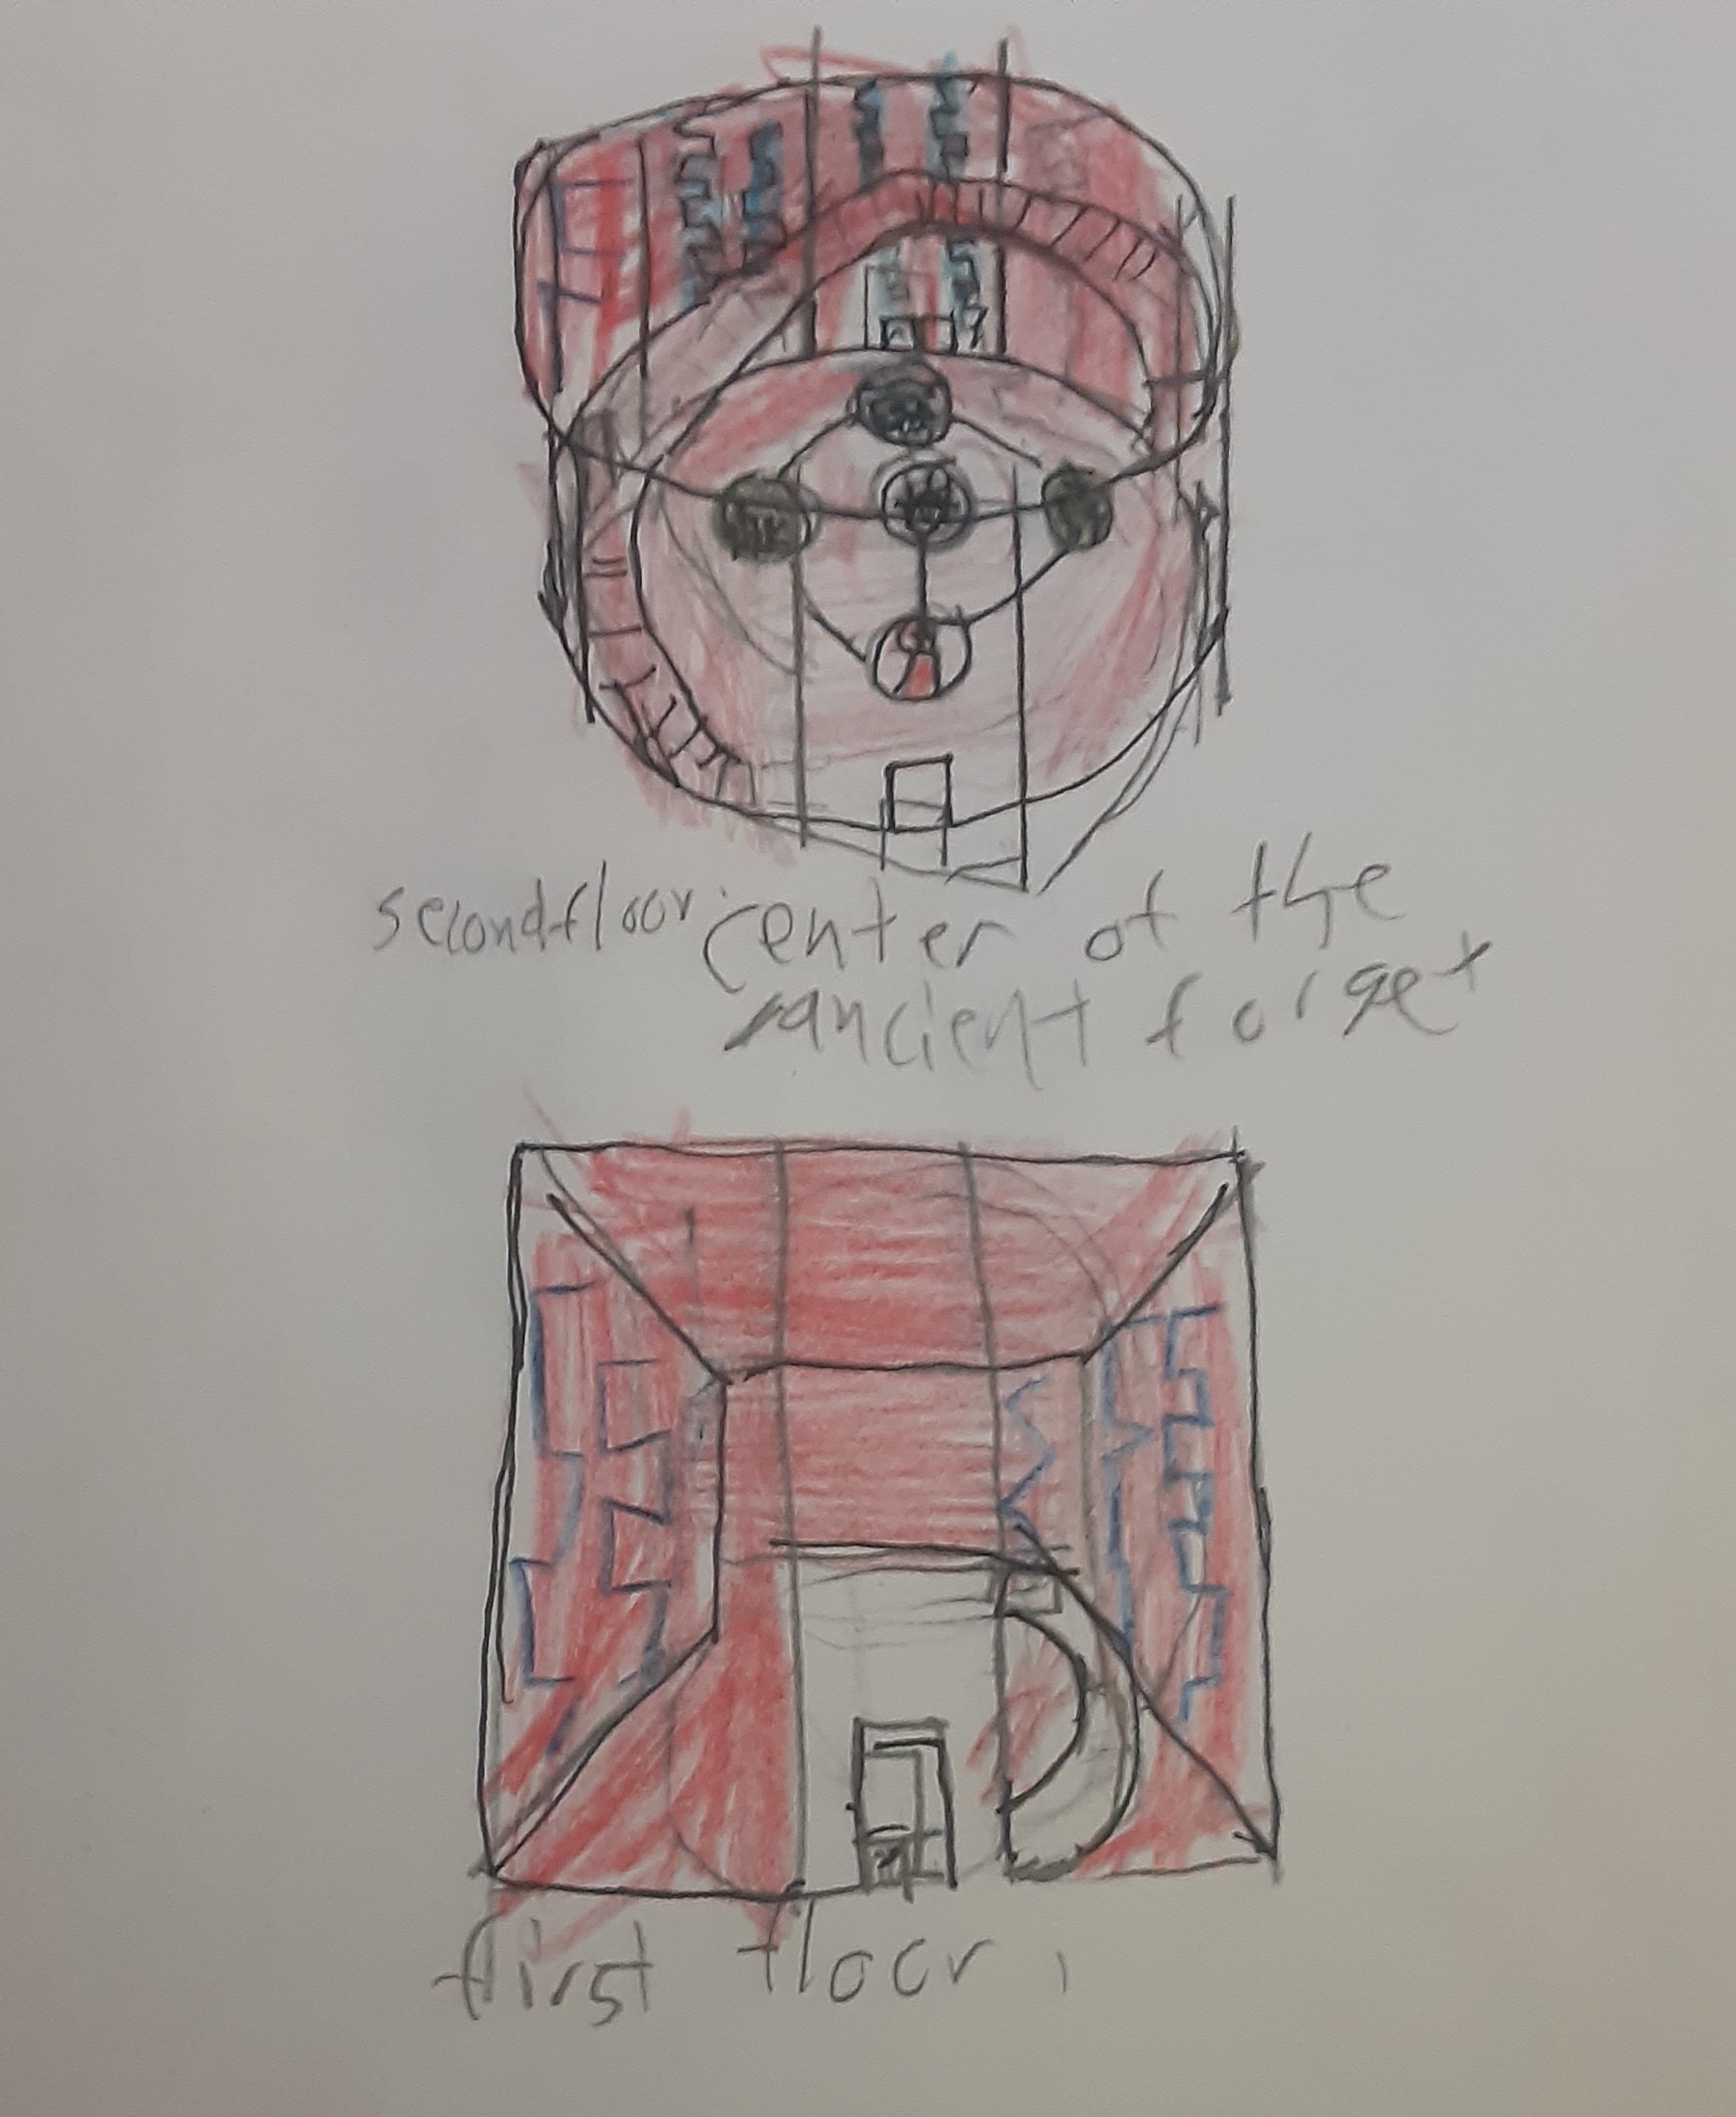 second floor center of the
ancient forget
first floor